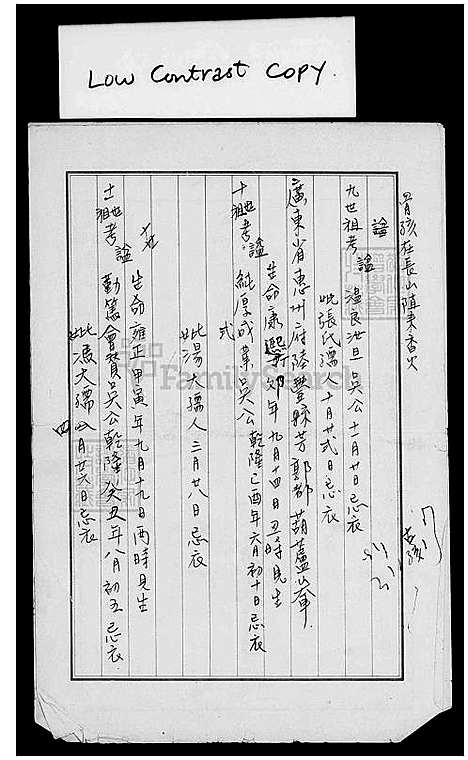 Low Contrast COPY.
骨孩在長山 秉香火
諡
九世祖考諡温良 旦吳公十一月廿日忌衣
妣張氏孺人十月廿式日忌衣
廣東省惠州府陸豐縣芳郭都葫蘆峯
生命康熙 卯年九月十四日丑時見生
十世祖考諡純厚成葦吳公乾隆己酉年六月初十日忌衣
式
妣湯大孺人三月廿八日忌衣
生命雍正甲寅年九月十九日酉時見生
十一世祖考諡勤篤會贊吳公乾隆癸丑年八月初五忌衣
妣 大孺人 月廿六日忌衣
四
FamilySearch